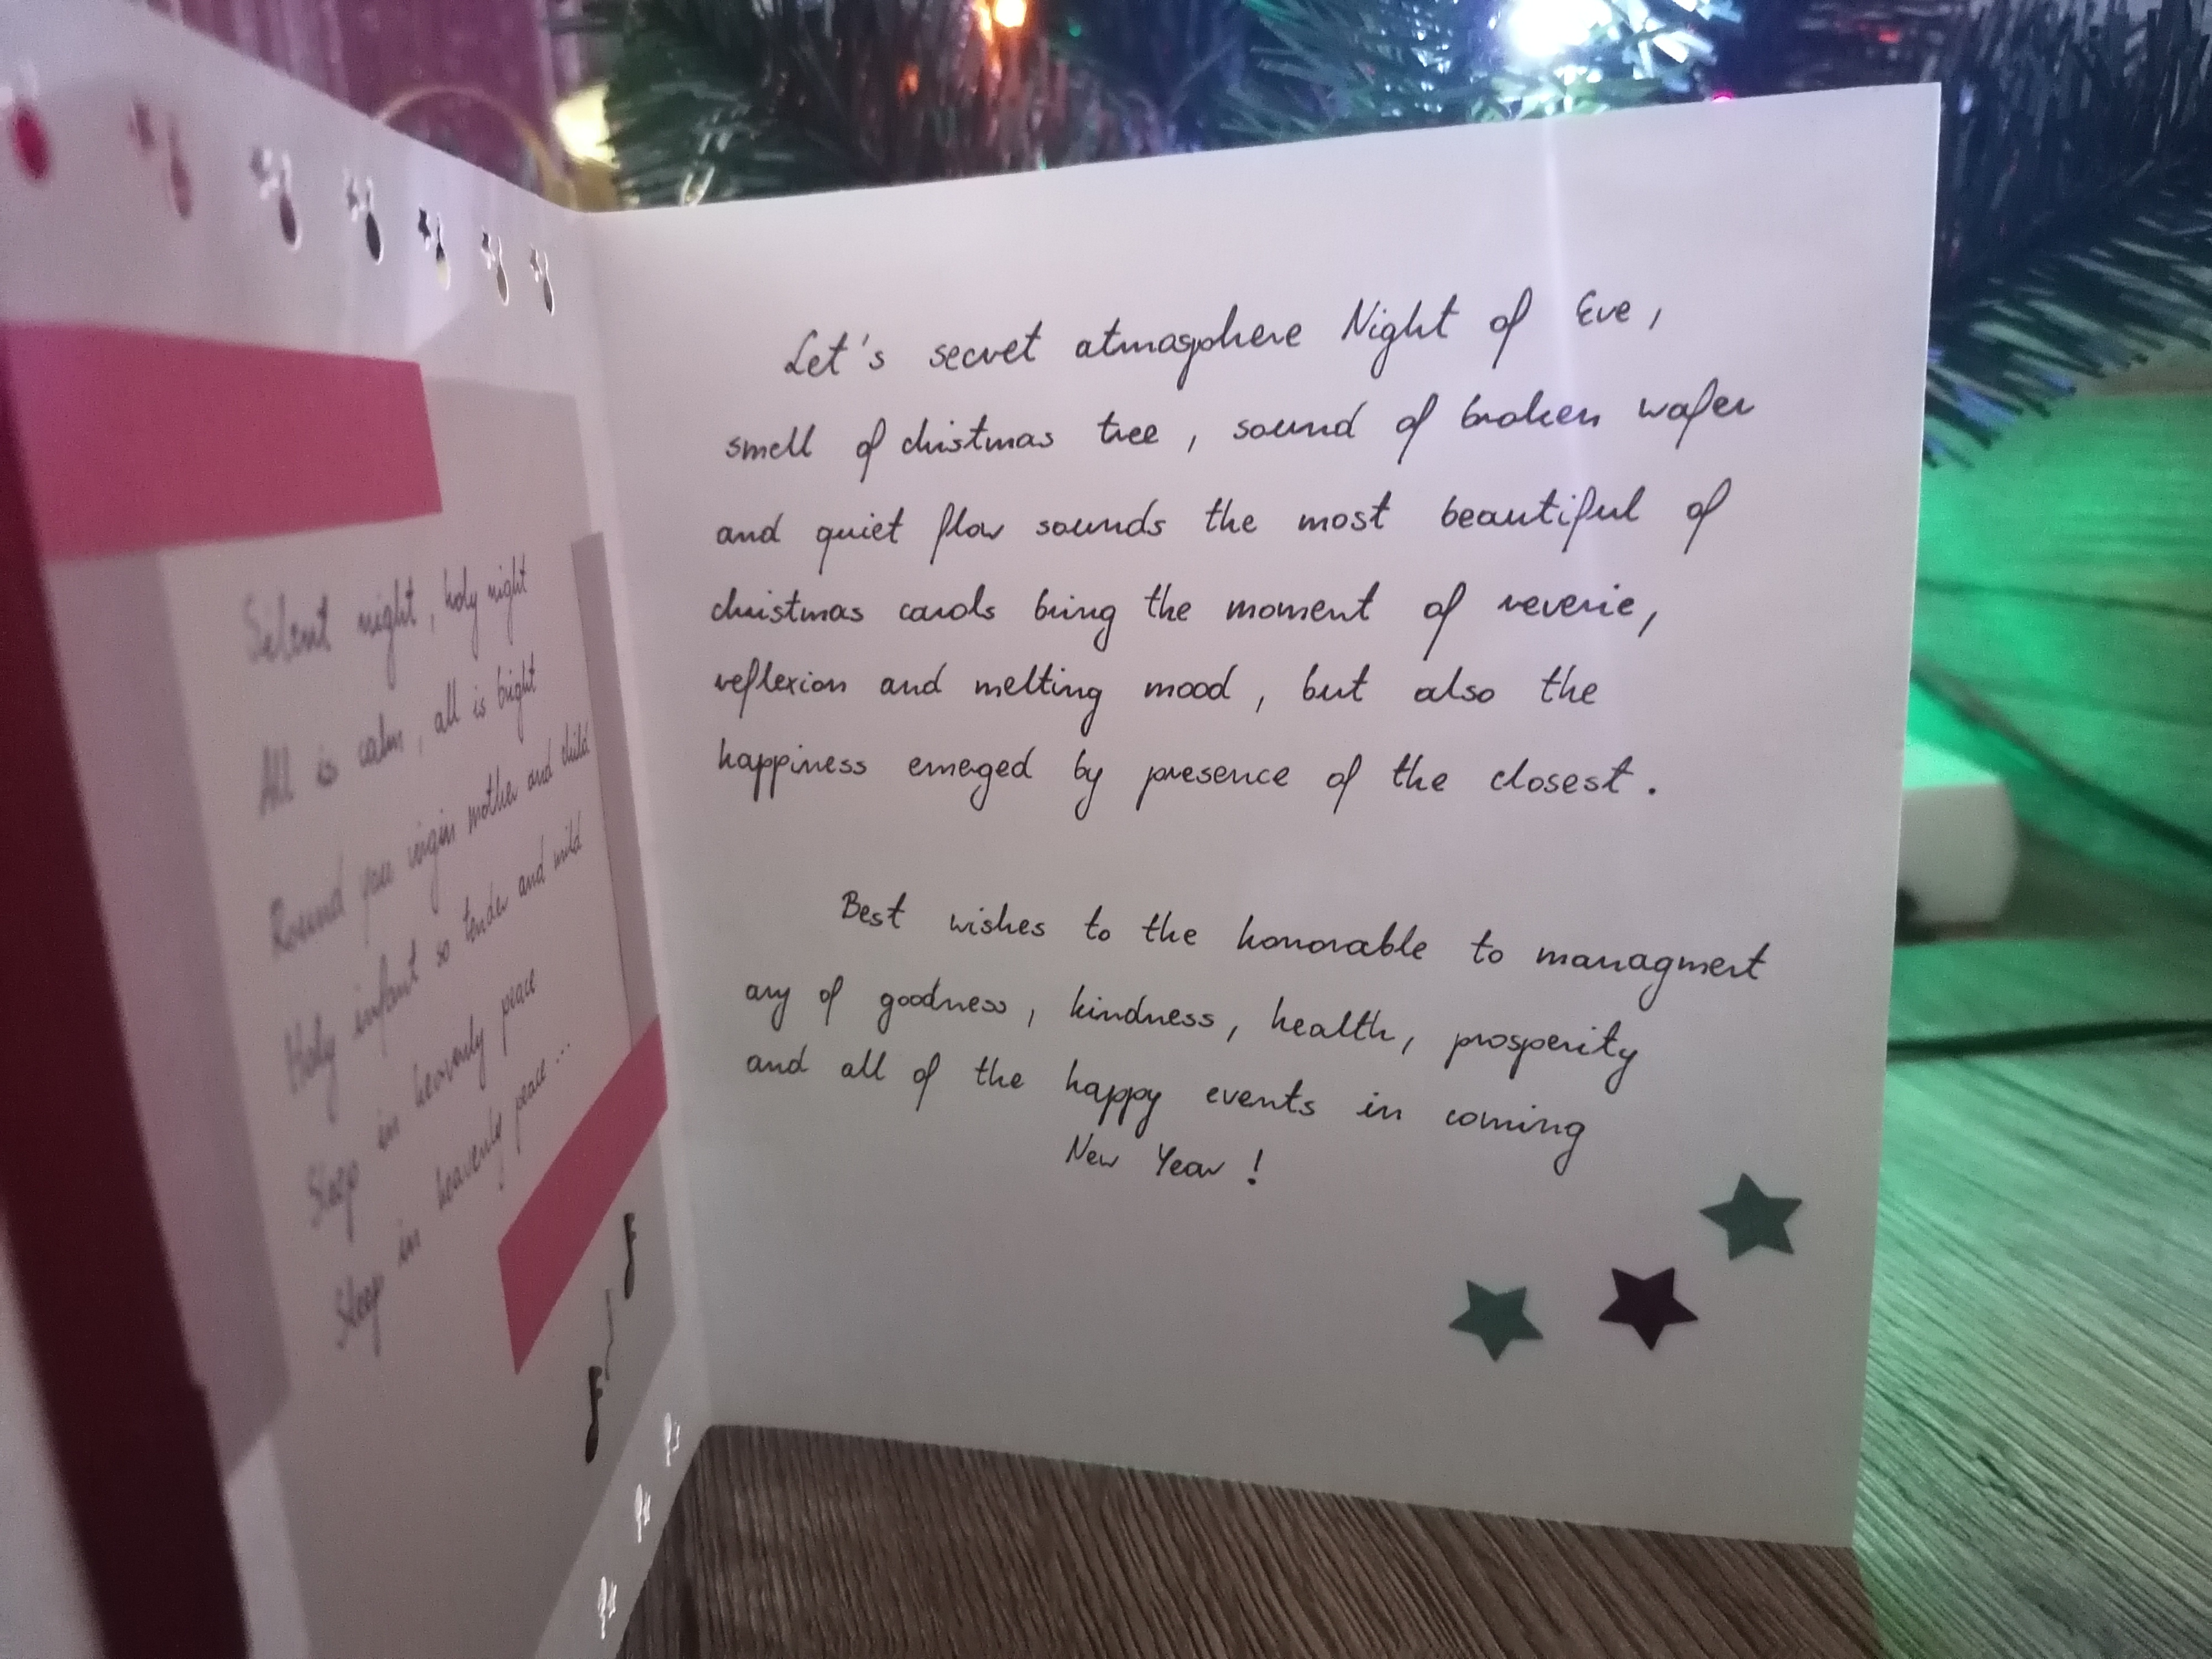 Silent night, holy night
All is calm, all is bright
Round you virgin mother and child
Holy infant so tender and mild
Sleep in heavenly peace
Sleep in heavenly peace...
Let's secret atmasphere Night of Eve,
smell of christmas tree, sound of broken wafer
and quiet flow sounds the most beautiful of
christmas carols bring the moment of reverie,
reflexion and melting mood, but also the
happiness emeged by presence of the closest.
Best wishes to the honorable to managment
any of goodness, kindness, health, prosperity
and all of the happy events in coming
New Year!